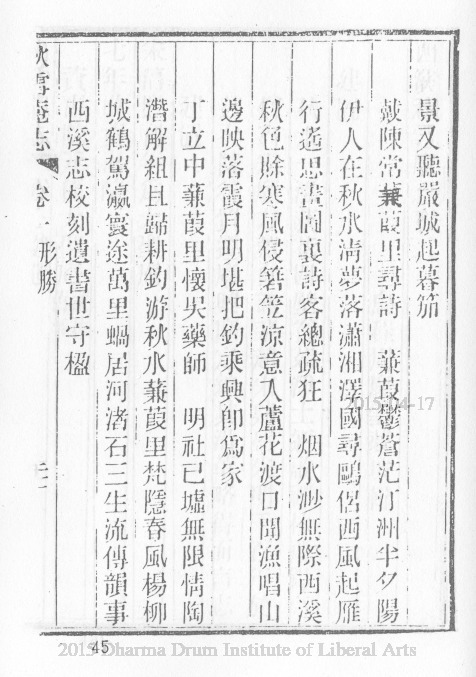 景又聽嚴城起暮笳
戴陳常蒹葭里尋詩　蒹葭鬱蒼茫汀洲半夕陽
伊人在秋水淸夢落瀟湘澤國尋鷗侶西風起雁
行遙思畫圖裏詩客總疏狂　烟水渺無際西溪
秋色賒寒風侵箬笠涼意入蘆花渡口聞漁唱山
邊映落霞月明堪把釣乘興卽爲家
丁立中蒹葭里懷吳藥師　明社已墟無限情陶
潛解組且歸耕釣游秋水蒹葭里梵隱春風楊柳
城鶴駕瀛寰途萬里蝸居河渚石三生流傳韻事
西溪志校刻遺書世守楹
秋雪菴志　卷一形勝
2015-04-17
45
2015 Dharma Drum Institute of Liberal Arts